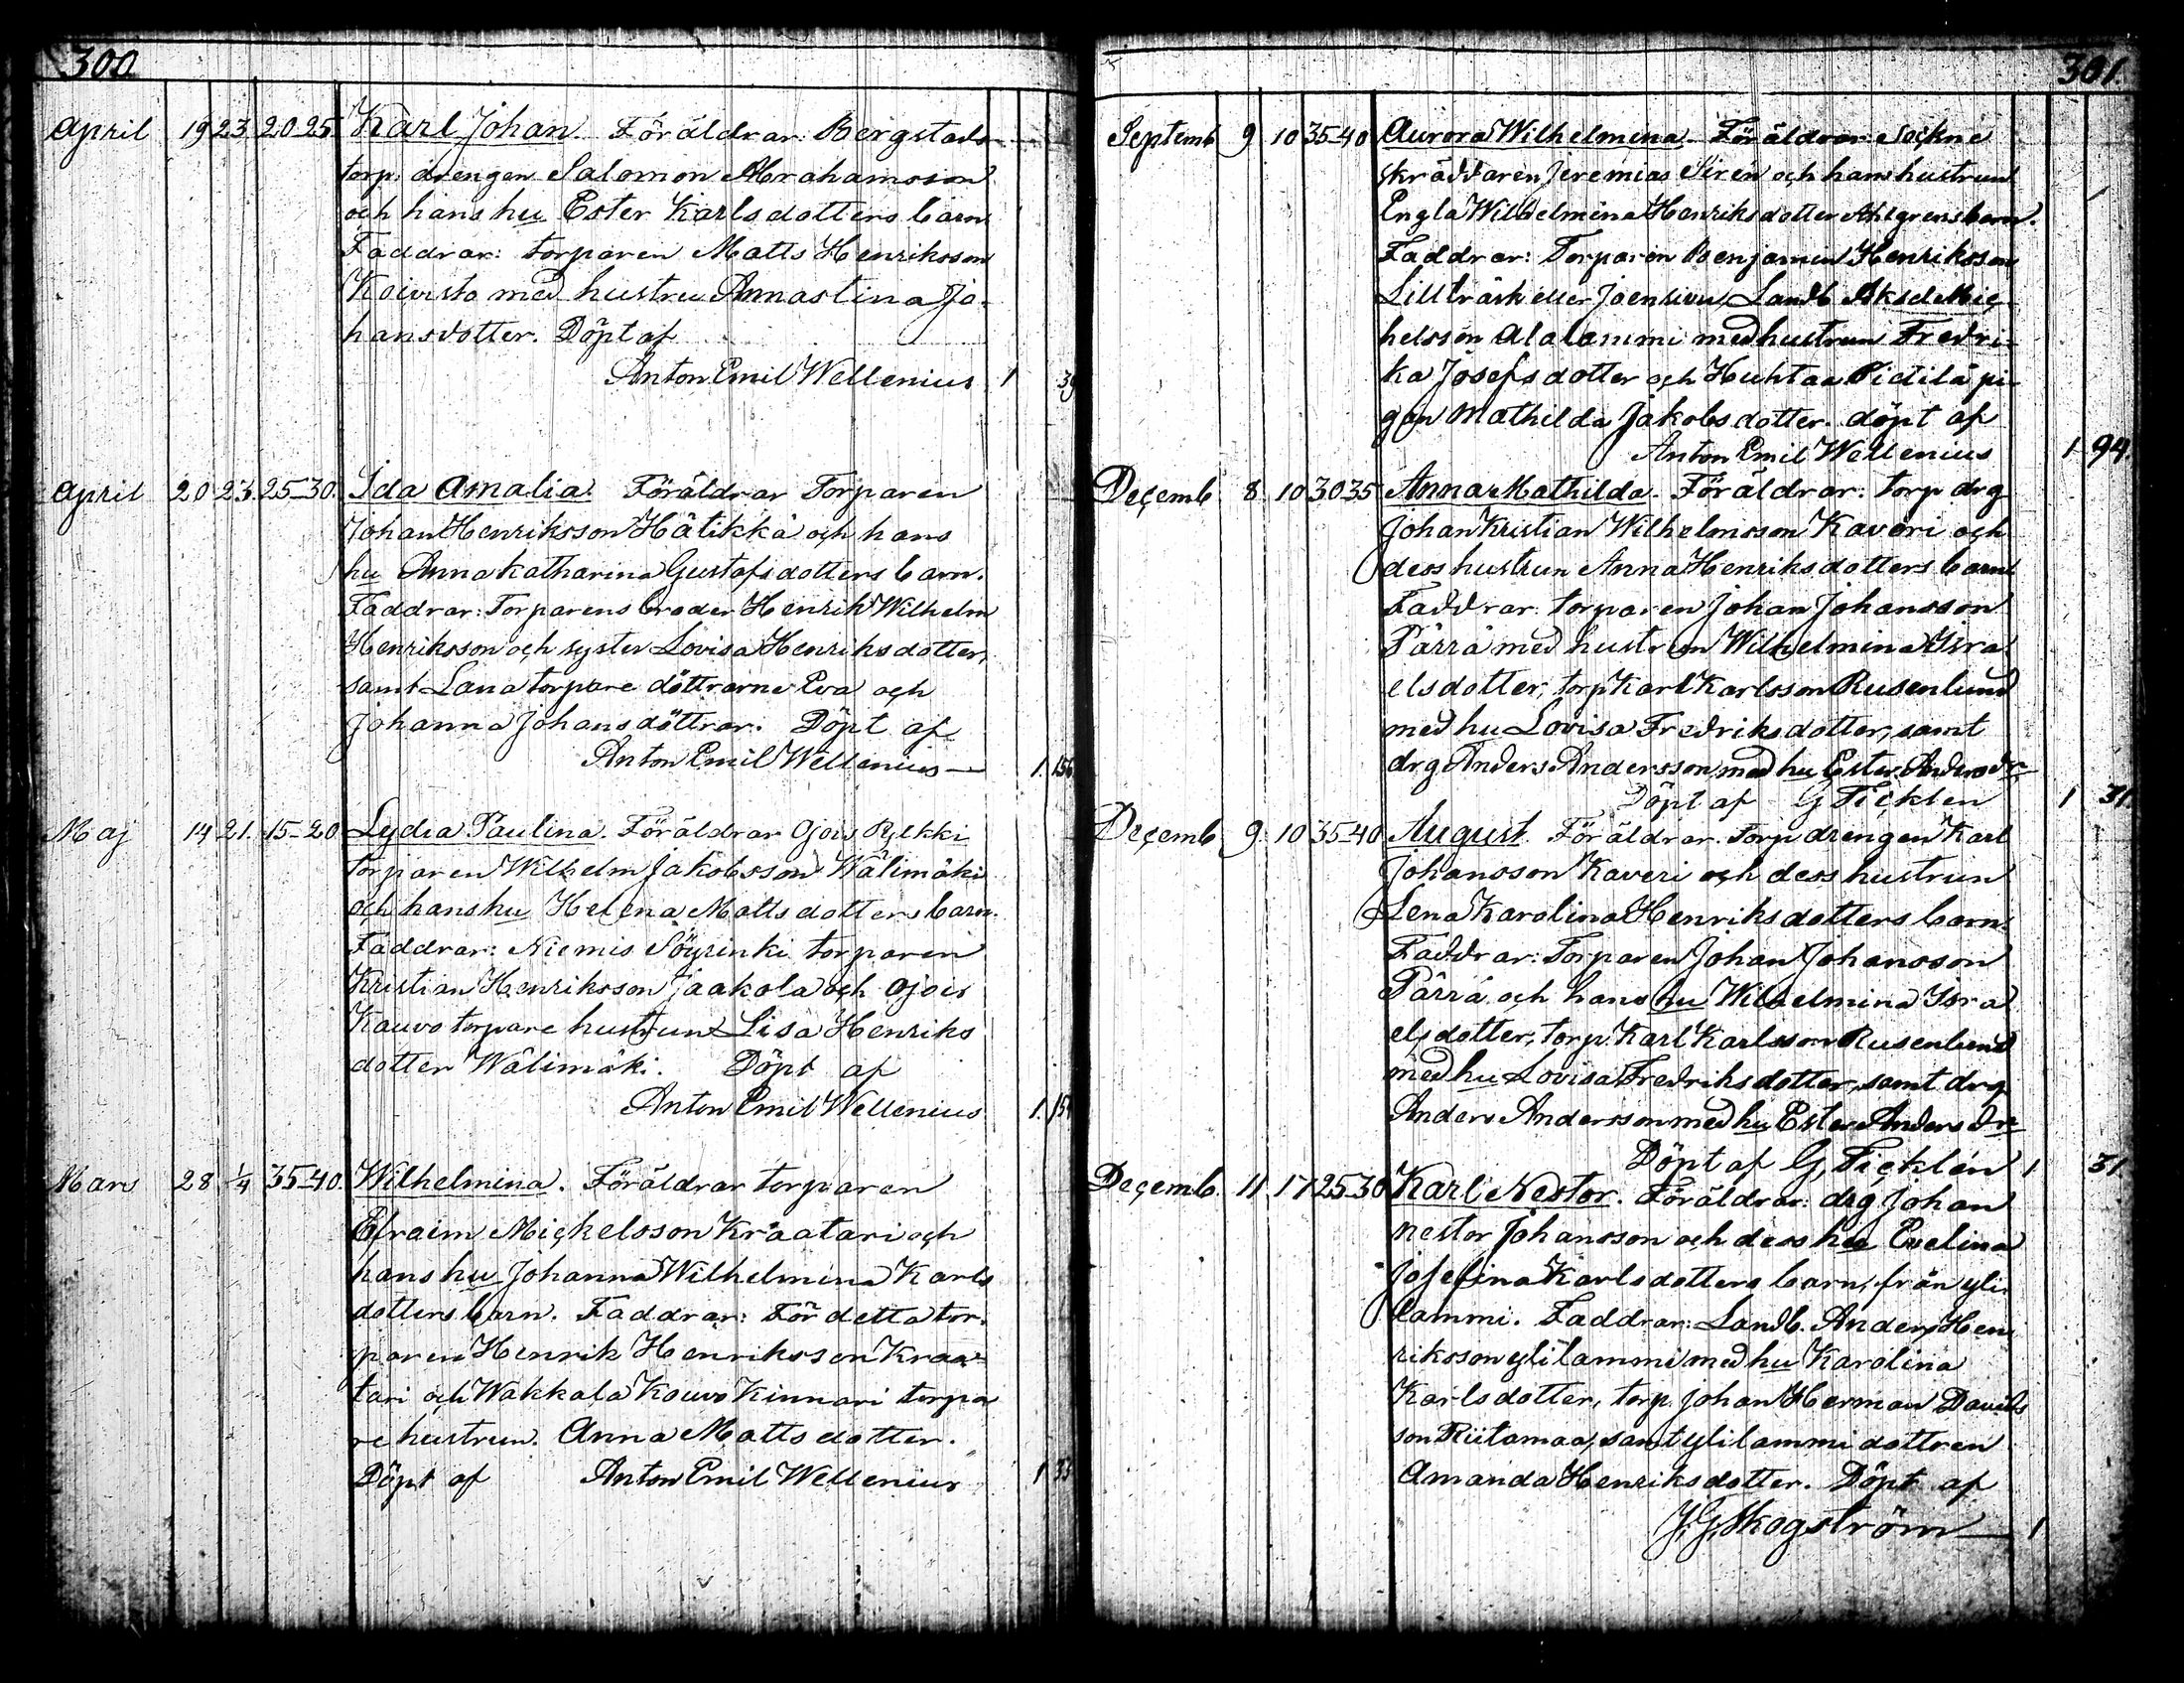 300
April 19 23 20-25 Karl Johan. Föräldrar: Bergstads
torp. drengen Salomon Abrahamsson
och hans hu Ester Karlsdotters barn.
Faddrar: torparen Matts Henriksson
Koivisto med hustru Annastina Jo-
hansdotter. Döpt af
Anton Emil Wellenius 1 39
April 20 23 25-30. Ida Amalia. Föräldrar Torparen
Johan Henriksson Hätikkä och hans
hu Anna Katharina Gustafsdotters barn.
Faddrar: Torparens broder Henrik Wilhelm
Henriksson och syster Lovisa Henriksdotter,
samt Lana torpare döttrarne Eva och
Johanna Johansdöttrar. Döpt af
Anton Emil Wellenius 1. 156
Maj 14 21. 15-20 Lydia Paulina. Föräldrar Ojois Pylkki
torparen Wilhelm Jakobsson Wälimäki
och hans hu Helena Mattsdotters barn.
Faddrar: Niemis Söyrinki torparen
Kristian Henriksson Jaakola och Ojois
Kauvo torpare hustrun Lisa Henriks
dotter Wälimäki. Döpt af
Anton Emil Wellenius 1. 154
Mars 28 1/4 35-40. Wilhelmina. Föräldrar torparen
Efraim Mickelsson Kraatari och
hans hu Johanna Wilhelmina Karls
dotters barn. Faddrar: För detta tor-
paren Henrik Henriksson Kraa-
tari och Wakkala Kouvo Kinnari torpa
re hustrun. Anna Mattsdotter.
Döpt af Anton Emil Wellenius 1 33
301.
Septemb 9 10 35-40 Aurora Wilhelmina. Föräldrar Sockne
skräddaren Jeremias Sirén och hans hustrun
Engla Wilhelmina Henriksdotter Ahlgrens barn.
Faddrar: Torparen Benjamin Henriksson
Lillträsk eller Joensuu, Landb. Aksel Mic-
helsson Alalammi med hustrun Fredri-
ka Josefsdotter och Huhtaa Pietilä pi-
gan Mathilda Jakobsdotter. döpt af
Anton Emil Wellenius 1 94
Decemb 8. 10 30 35 Anna Mathilda. Föräldrar: torp drg
Johan Kristian Wilhelmsson Kaveri och
dess hustrun Anna Henriksdotters barn
Faddrar: torparen Johan Johansson
Pärrä med hustrun Wilhelmina Isra-
elsdotter, torp Karl Karlsson Rusenlund
med hu Lovisa Fredriksdotter, samt
drg Anders Andersson med hu Ester Andersdr
Döpt af G Ticklén 1 31.
Decemb 9. 10 35-40 August. Föräldrar. torp drengen Karl
Johansson Kaveri och dess hustrun
Lena Karolina Henriksdotters barn.
Faddrar: Torparen Johan Johansson
Pärrä och hans hu Wilhelmina Isra
elsdotter, torp. Karl Karlsson Rusenlund
med hu Lovisa Fredriksdotter, samt drg
Anders Andersson med hu Ester Anders dr
Döpt af G, Ticklén 1 31.
Decemb. 11. 17 25-30 Karl Nestor. Föräldrar: drg Johan
Nestor Johansson och dess hu Evelina
Josefina Karlsdotters barn, från yli-
lammi. Faddrar: Landb. Anders Hen
riksson ylilammi med hu Karolina
Karlsdotter, torp. Johan Herman Davids
son Riitamaa, samt ylilammi dottren
Amanda Henriksdotter. Döpt af
J, G, Skogström 1